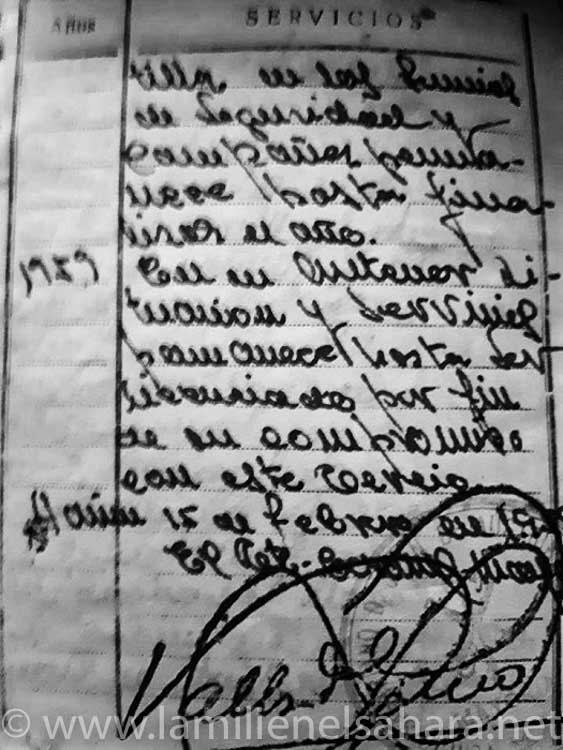 AÑOS SERVICIOS
en los
de Seguridad y
Campañas perma-
nece hasta fina-
lizar el año.
1959 En su anterior si-
tuación y servicios
permanece hasta ser
licenciado por fin
de su compromiso
con este Tercio
15 de febrero de
El Tte. Coronel
Valls
© www.lamilienelsahara.net